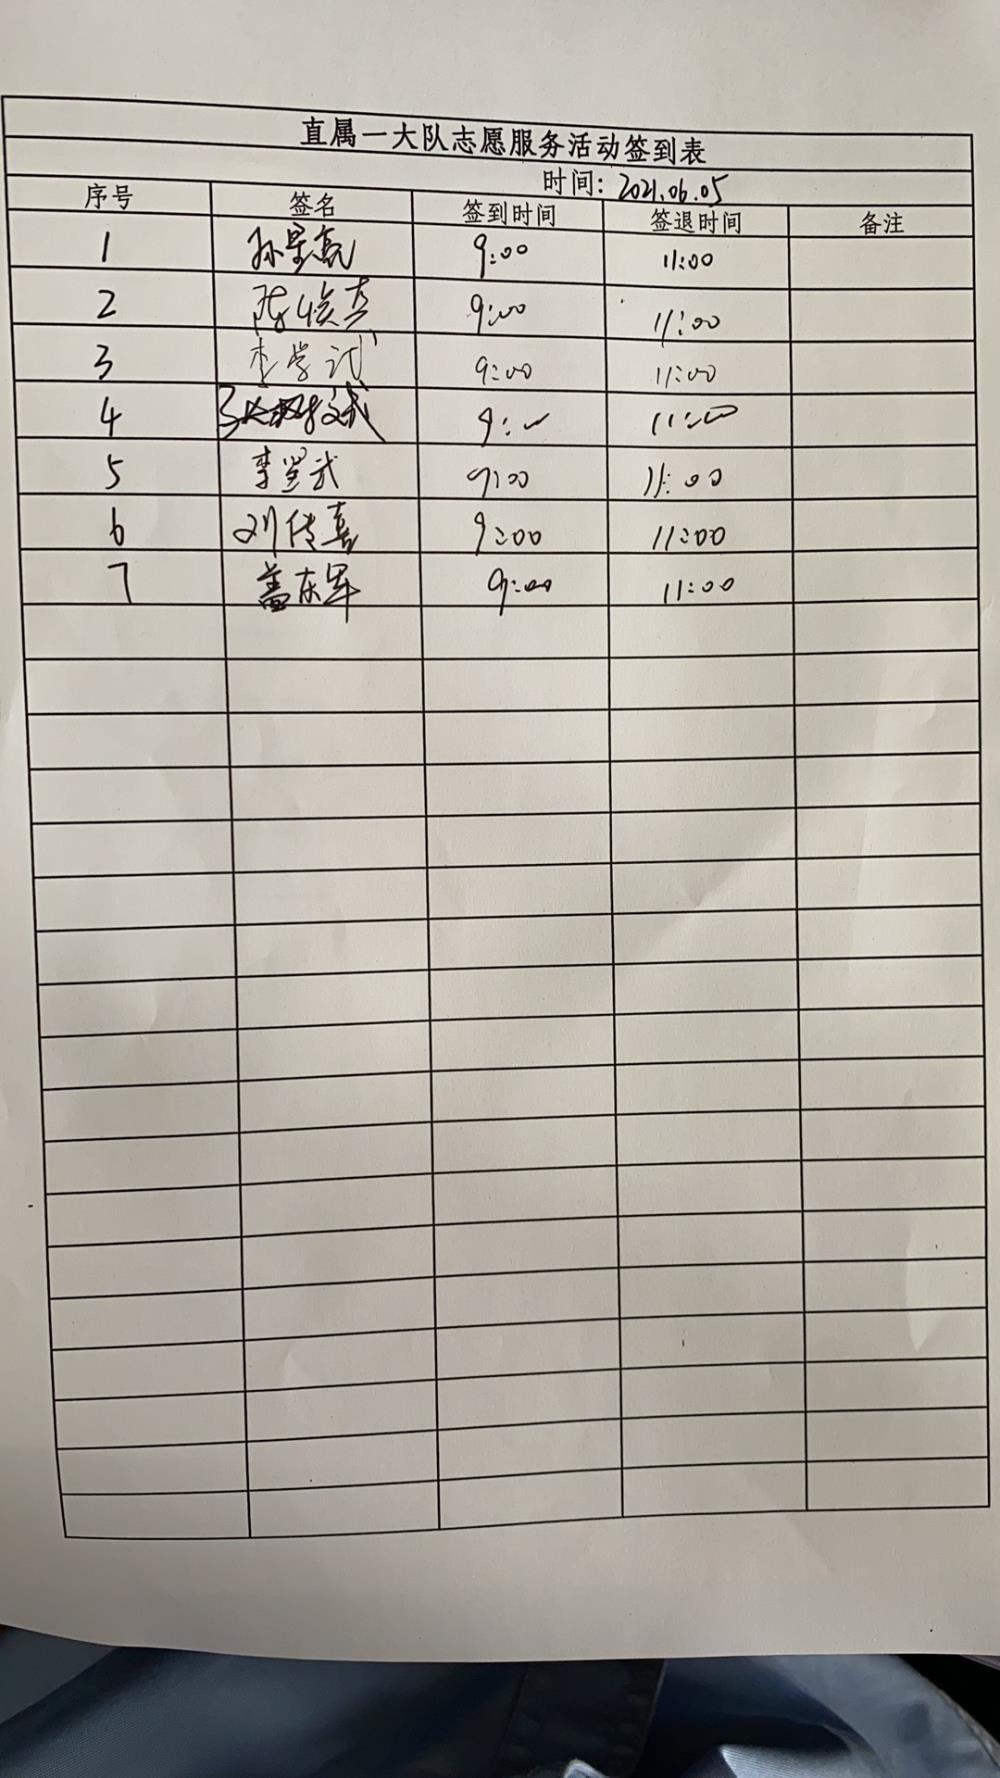 直属一大队志愿服务活动签到表
时间: 2021.06.05
序号 签名 签到时间 签退时间 备注
1 孙星亮 9:00 11:00
2 陈俊杰 9:00 11:00
3 李学试 9:00 11:00
4 9:00 11:00
5 李罡武 9:00 11:00
6 刘传喜 9:00 11:00
7 盖东军 9:00 11:00